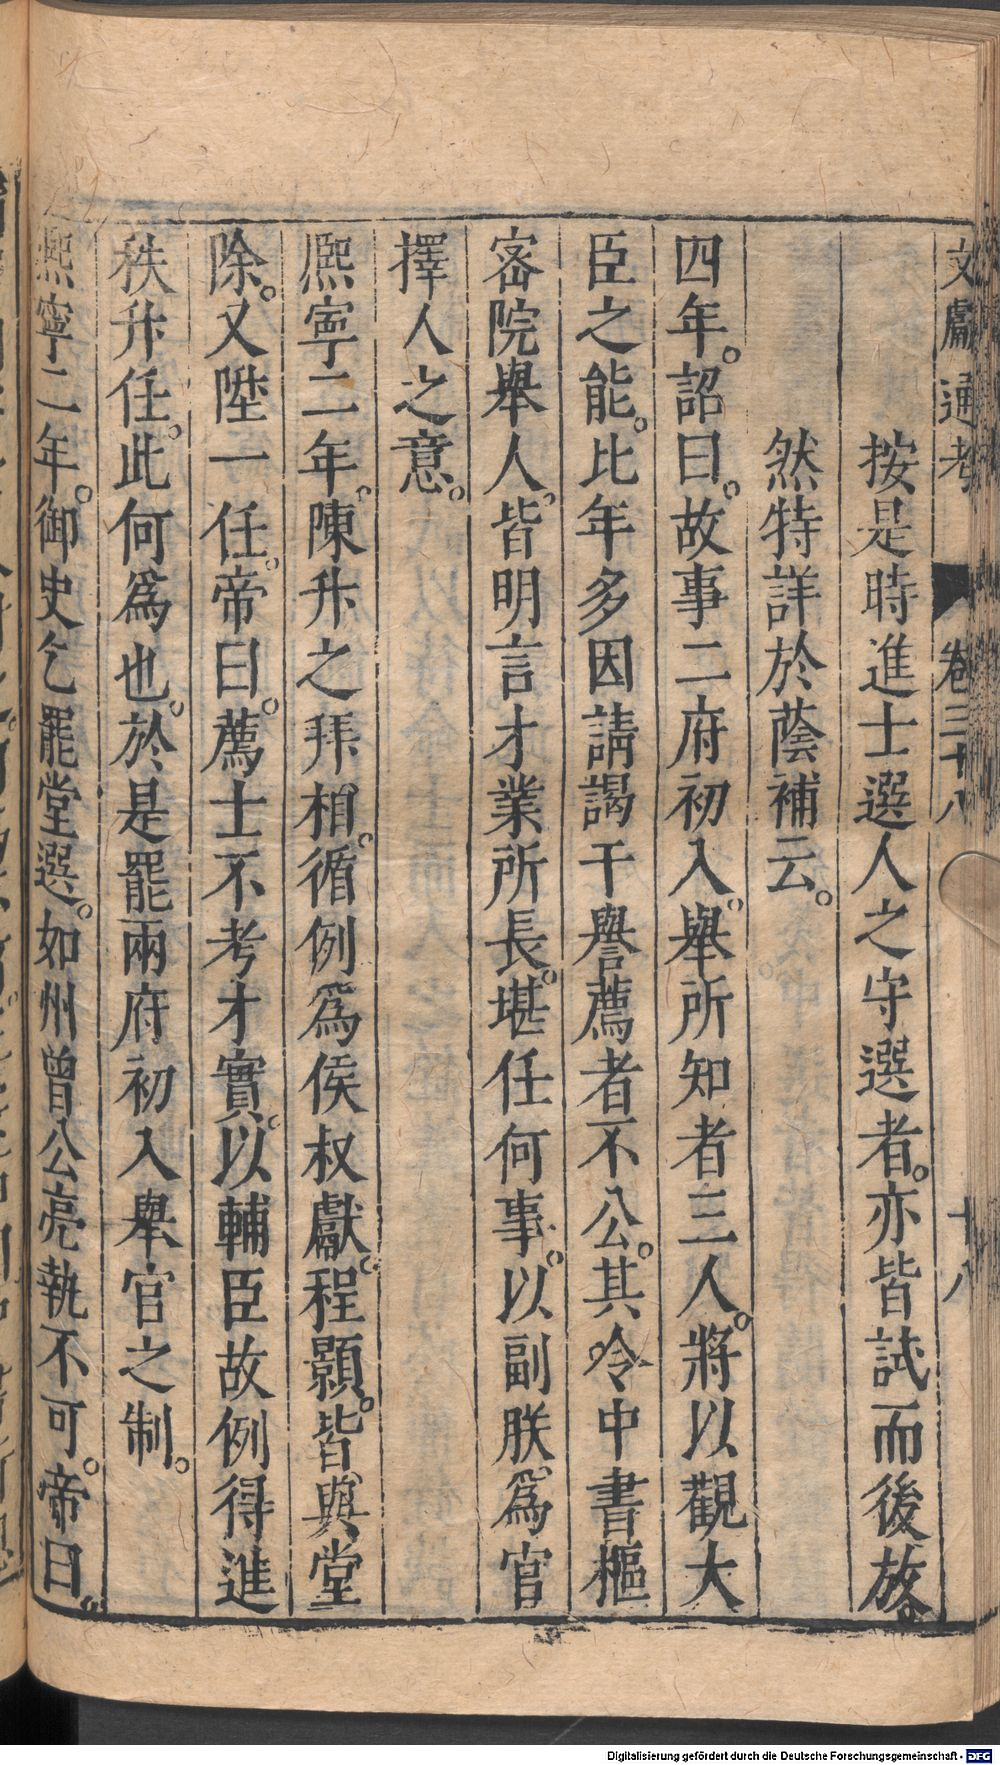 文獻通考 卷三十八 十八
按是時進士選人之守選者。亦皆試而後放。
然特詳於蔭補云。
四年。詔曰。故事二府初入。舉所知者三人。將以觀大
臣之能。比年多因請謁干譽薦者不公。其令中書樞
密院舉人。皆明言才業所長。堪任何事。以副朕爲官
擇人之意。
熈寧二年。陳升之拜相。循例爲侯叔獻。程顥。皆與堂
除。又陞一任。帝曰。薦士不考才實。以輔臣故例得進
秩升任。此何爲也。於是罷兩府初入舉官之制。
熈寧二年。御史乞罷堂選。如州曾公亮執不可。帝曰。
Digitalisierung gefördert durch die Deutsche Forschungsgemeinschaft - DFG